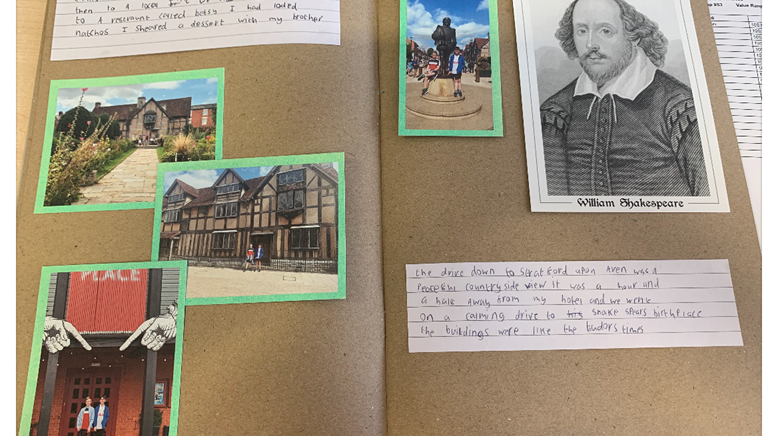 then to a local
to a restraunt called betsy I had loded
natchos I sheared a dessert with my brother
PLACE
William Shakespeare
the drive down to Stratford upon Aven was a
Peacefull countryside view it was a hour and
a half away from my hotel and we went
on a calming drive to snake spears birthplace
the buildings were like the tudors times
Value Rang